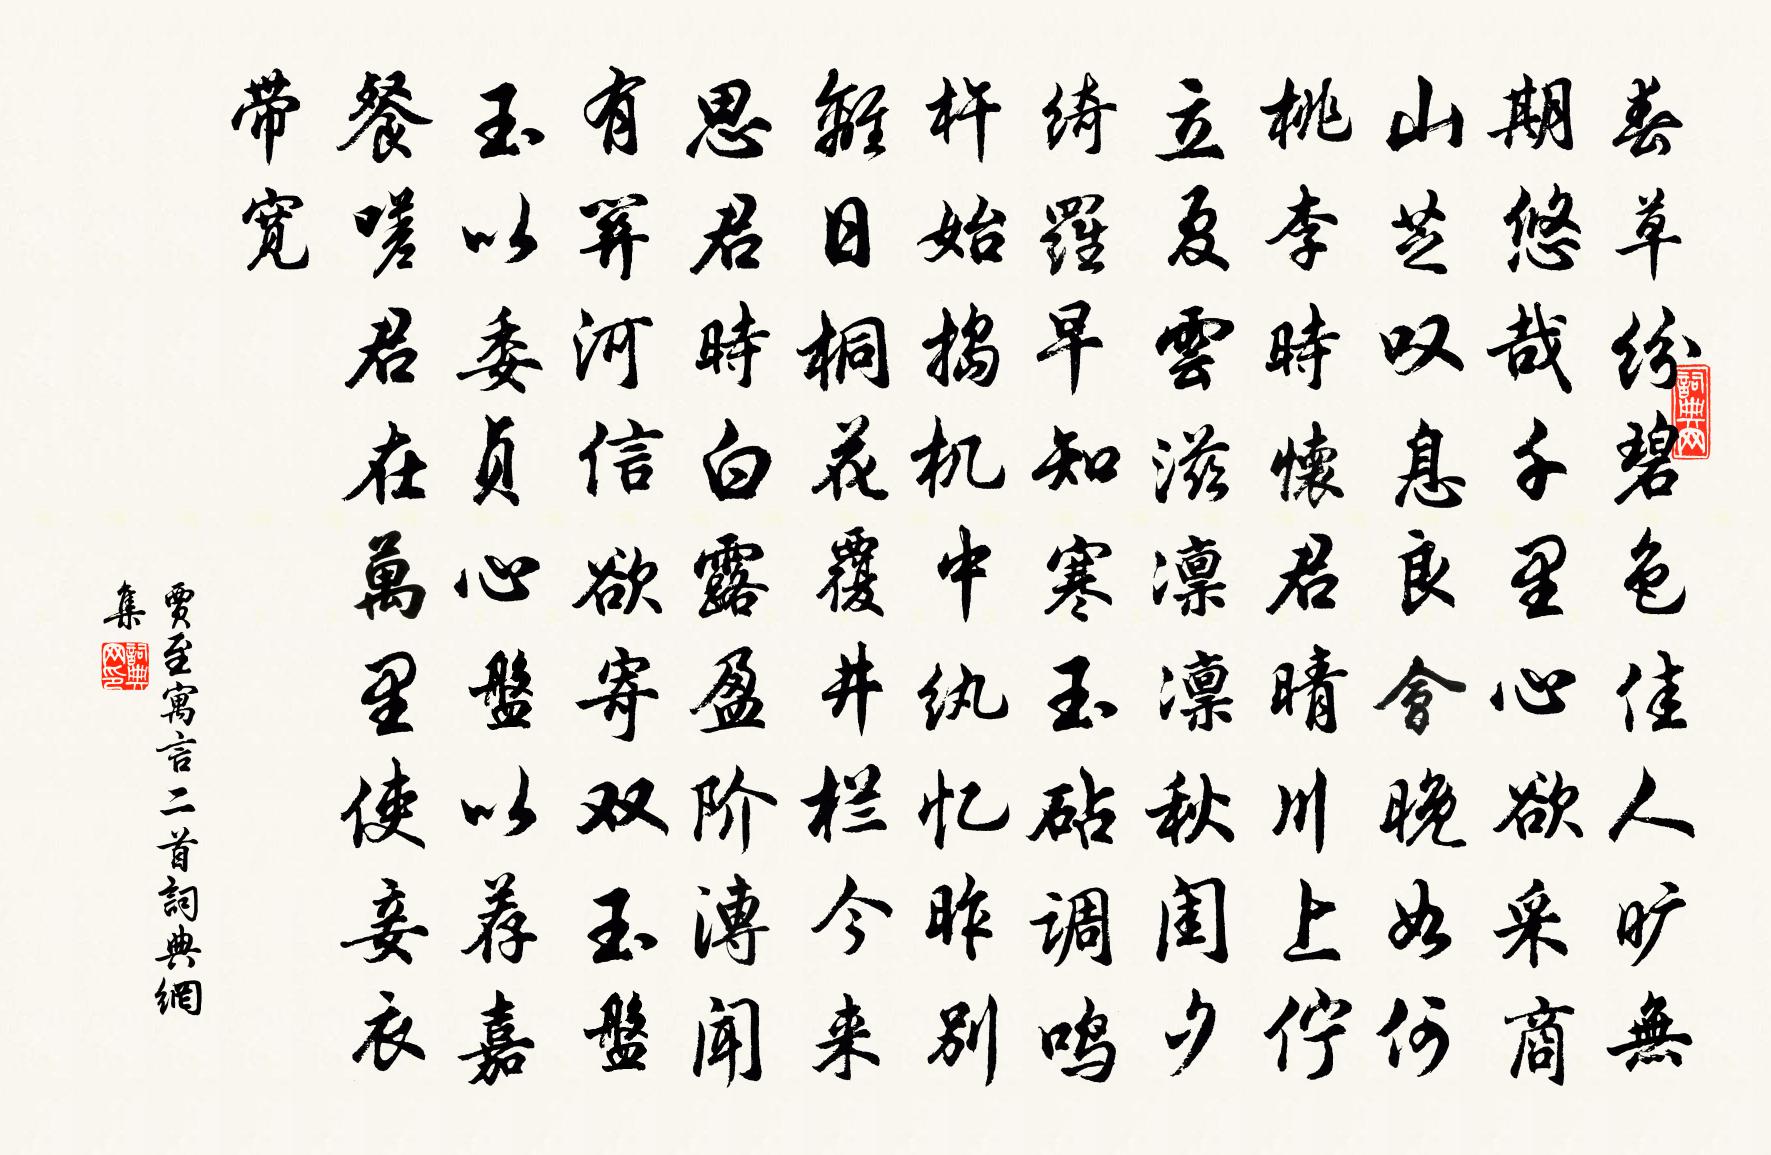 春草纷碧色佳人旷無
期悠哉千里心欲采商
山芝叹息良會晚如何
桃李時懷君晴川上佇
立夏雲滋凛凛秋闺夕
绮羅早知寒玉砧调鸣
杵始捣机中纨忆昨别
離日桐花覆井栏今来
思君時白露盈阶漙闻
有關河信欲寄双玉盤
玉以委贞心盤以荐嘉
餐嗟君在萬里使妾衣
带寬
賈至寓言二首詞典網
集
詞典网
詞典网印